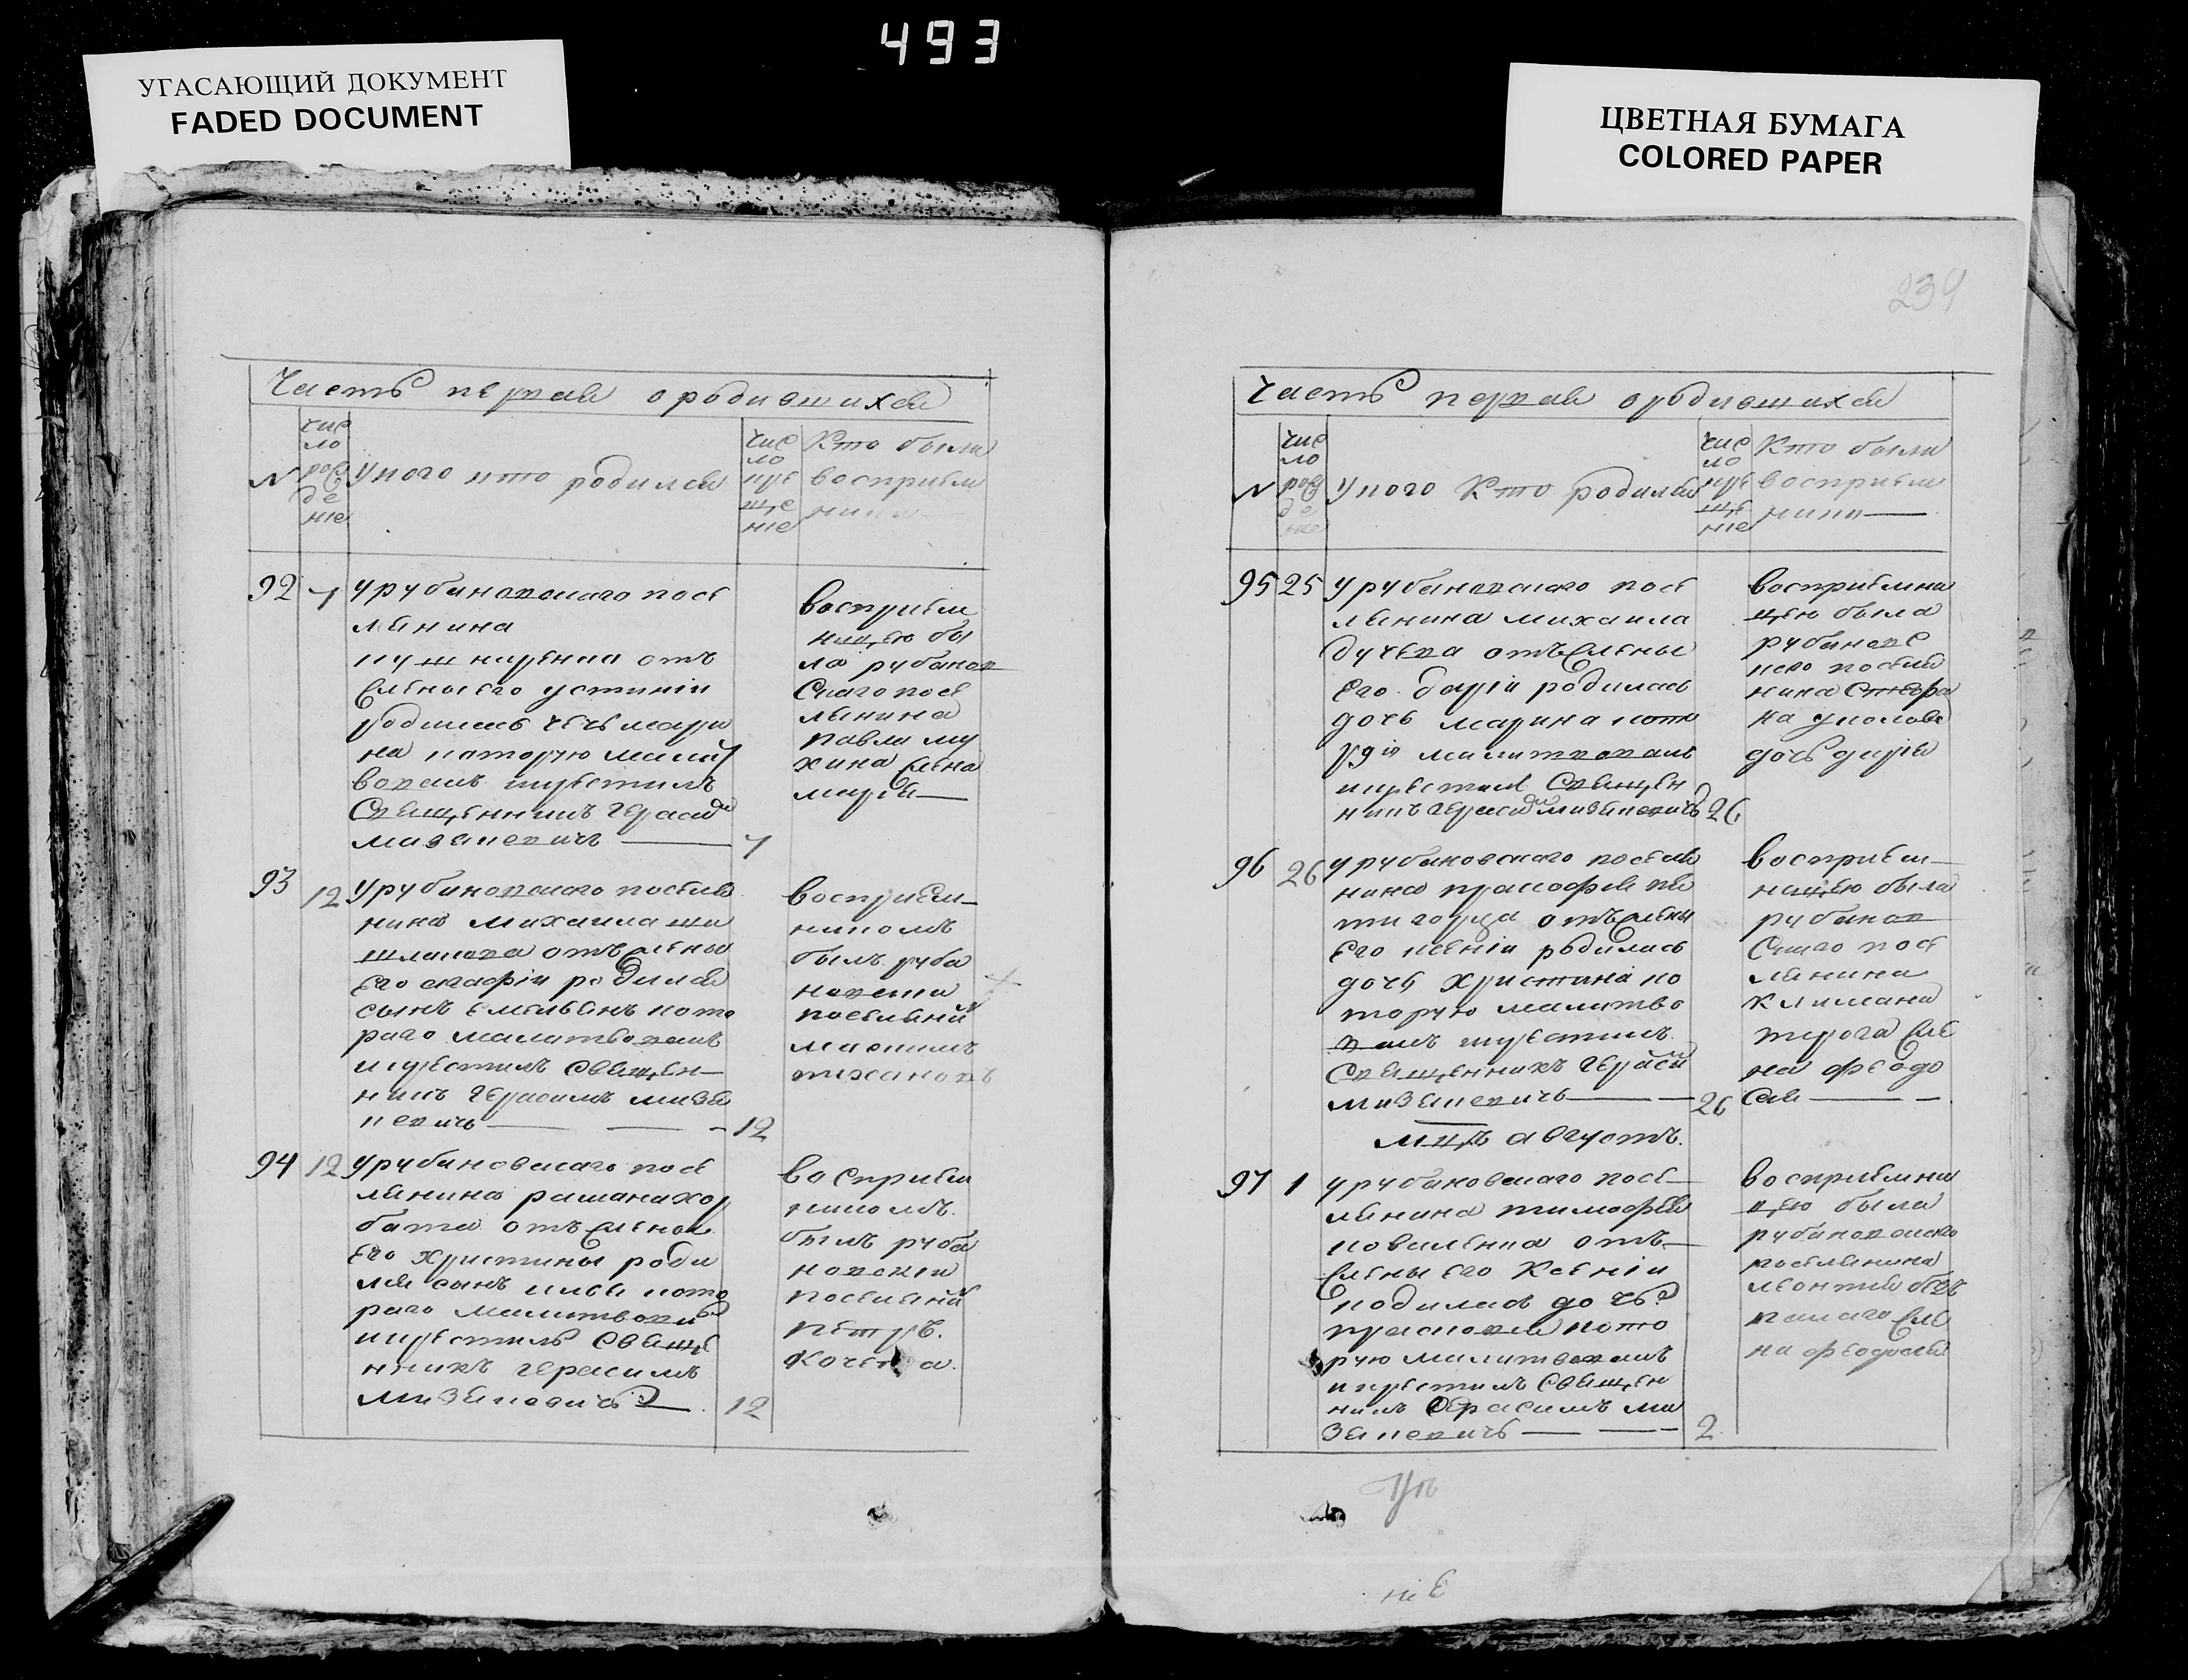 493
УГАСАЮЩИЙ ДОКУМЕНТ
FADED DOCUMENT
ЦВЕТНАЯ БУМАГА
COLORED PAPER
Часть первая о родившихся
N
чис
ло
рож
де
ніе
У кого кто родился
чис
ло
кре
ще
ніе
Кто были
восприем
ники
92
7
У рубановскаго посе
лянина
кушнаренка отъ
жены его устиніи
родилась дочь мари
на которую молит
вовалъ и крестилъ
Священникъ Герасим
Мизякевичъ
7
восприем
ницею бы
ла рубанов
скаго посе
лянина
павла му
хина жена
марья
93
12
У рубановскаго поселя
нина михаила ши
шлакова отъ жены
его агафіи родился
сынъ емельянъ кото
раго молитвовалъ
и крестилъ священ
никъ герасимъ мизя
кевичъ
12
восприем
никомъ
былъ руба
новски
поселянин
максимъ
тихановъ
94
12
У рубановскаго посе
лянина рамана хор
бата отъ жены
его христины роди
лся сынъ илья кото
раго молитвовалъ
и крестилъ свяще
нникъ герасимъ
мизяковичъ
12
восприем
никомъ.
былъ руба
новскіи
поселянин
петръ.
234
Часть первая о родившихся
N
чис
ло
рож
де
ніе
У кого Кто родился
чис
ло
кре
ще
ніе
Кто были
восприем
ники
95
25
У рубановскаго посе
лянина михаила
дучева отъ жены
его даріи родилась
дочь марина кото
рую молитвовалъ
и крестилъ Священ
никъ герасим мизякевичъ
26
восприемни
цею была
рубановс
каго поселя
нина
дочь дарія
96
26
У рубановскаго поселя
нина пракофея пя
тигорца отъ жены
его ксеніи родилась
дочь христина ко
торую молитво
валъ и крестилъ
Священникъ герасим
мизякевичъ
26
восприем
ницею была
рубанов
скаго посе
лянина
климана
жена феодо
сия
мцъ августъ.
97
1
У рубановскаго посе
лянина тимофея
коваленка отъ
жены его Ксеніи
родилась дочь
прасковея кото
рую молитвовалъ
и крестилъ Священ
никъ Герасимъ ми
зякевичъ
2
восприемни
цею была
рубановскаго
поселянина
леонтия без
палаго же
на феодосия
ніе